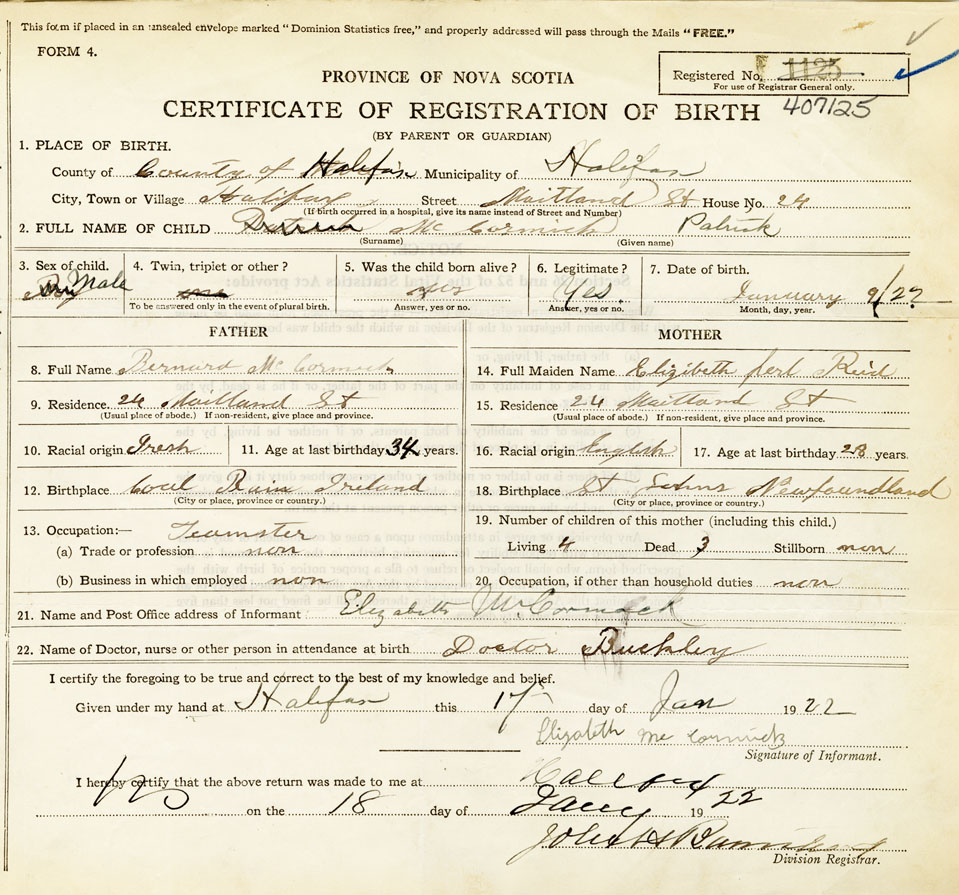 This form if placed in an unsealed envelope marked "Dominion Statistics free," and properly addressed will pass through the Mails "FREE."
FORM 4.
Registered No. 1125
For use of Registrar General only.
PROVINCE OF NOVA SCOTIA
CERTIFICATE OF REGISTRATION OF BIRTH 407125
(BY PARENT OR GUARDIAN)
1. PLACE OF BIRTH.
County of County of Halifax Municipality of Halifax
City, Town or Village Halifax Street Maitland St House No. 24
(If birth occurred in a hospital, give its name instead of Street and Number)
2. FULL NAME OF CHILD Mc Cormick Patrick
(Surname) (Given name)
3. Sex of child. 4. Twin, triplet or other? 5. Was the child born alive? 6. Legitimate? 7. Date of birth.
Male yes Yes. January 9/22
To be answered only in the event of plural birth. Answer, yes or no. Answer, yes or no. Month, day, year.
FATHER
8. Full Name Bernard Mc Cormick
9. Residence 24 Maitland St
(Usual place of abode.) If non-resident, give place and province.
10. Racial origin Iresh 11. Age at last birthday 34 years.
12. Birthplace Ireland
(City or place, province or country.)
13. Occupation:— Teamster
(a) Trade or profession non
(b) Business in which employed non
MOTHER
14. Full Maiden Name Elizibeth Reid
15. Residence 24 Maitland St
(Usual place of abode.) If non-resident, give place and province.
16. Racial origin English 17. Age at last birthday 28 years.
18. Birthplace St Johns Newfoundland
(City or place, province or country.)
19. Number of children of this mother (including this child.)
Living 4 Dead 3 Stillborn non
20. Occupation, if other than household duties non
21. Name and Post Office address of Informant Elizabeth McCormack
22. Name of Doctor, nurse or other person in attendance at birth Doctor Buckley
I certify the foregoing to be true and correct to the best of my knowledge and belief.
Given under my hand at Halifax this 17th day of Jan 1922
Elizabeth Mc Cormick
Signature of Informant.
I hereby certify that the above return was made to me at Halifax
on the 18 day of Jany 1922
John H
Division Registrar.